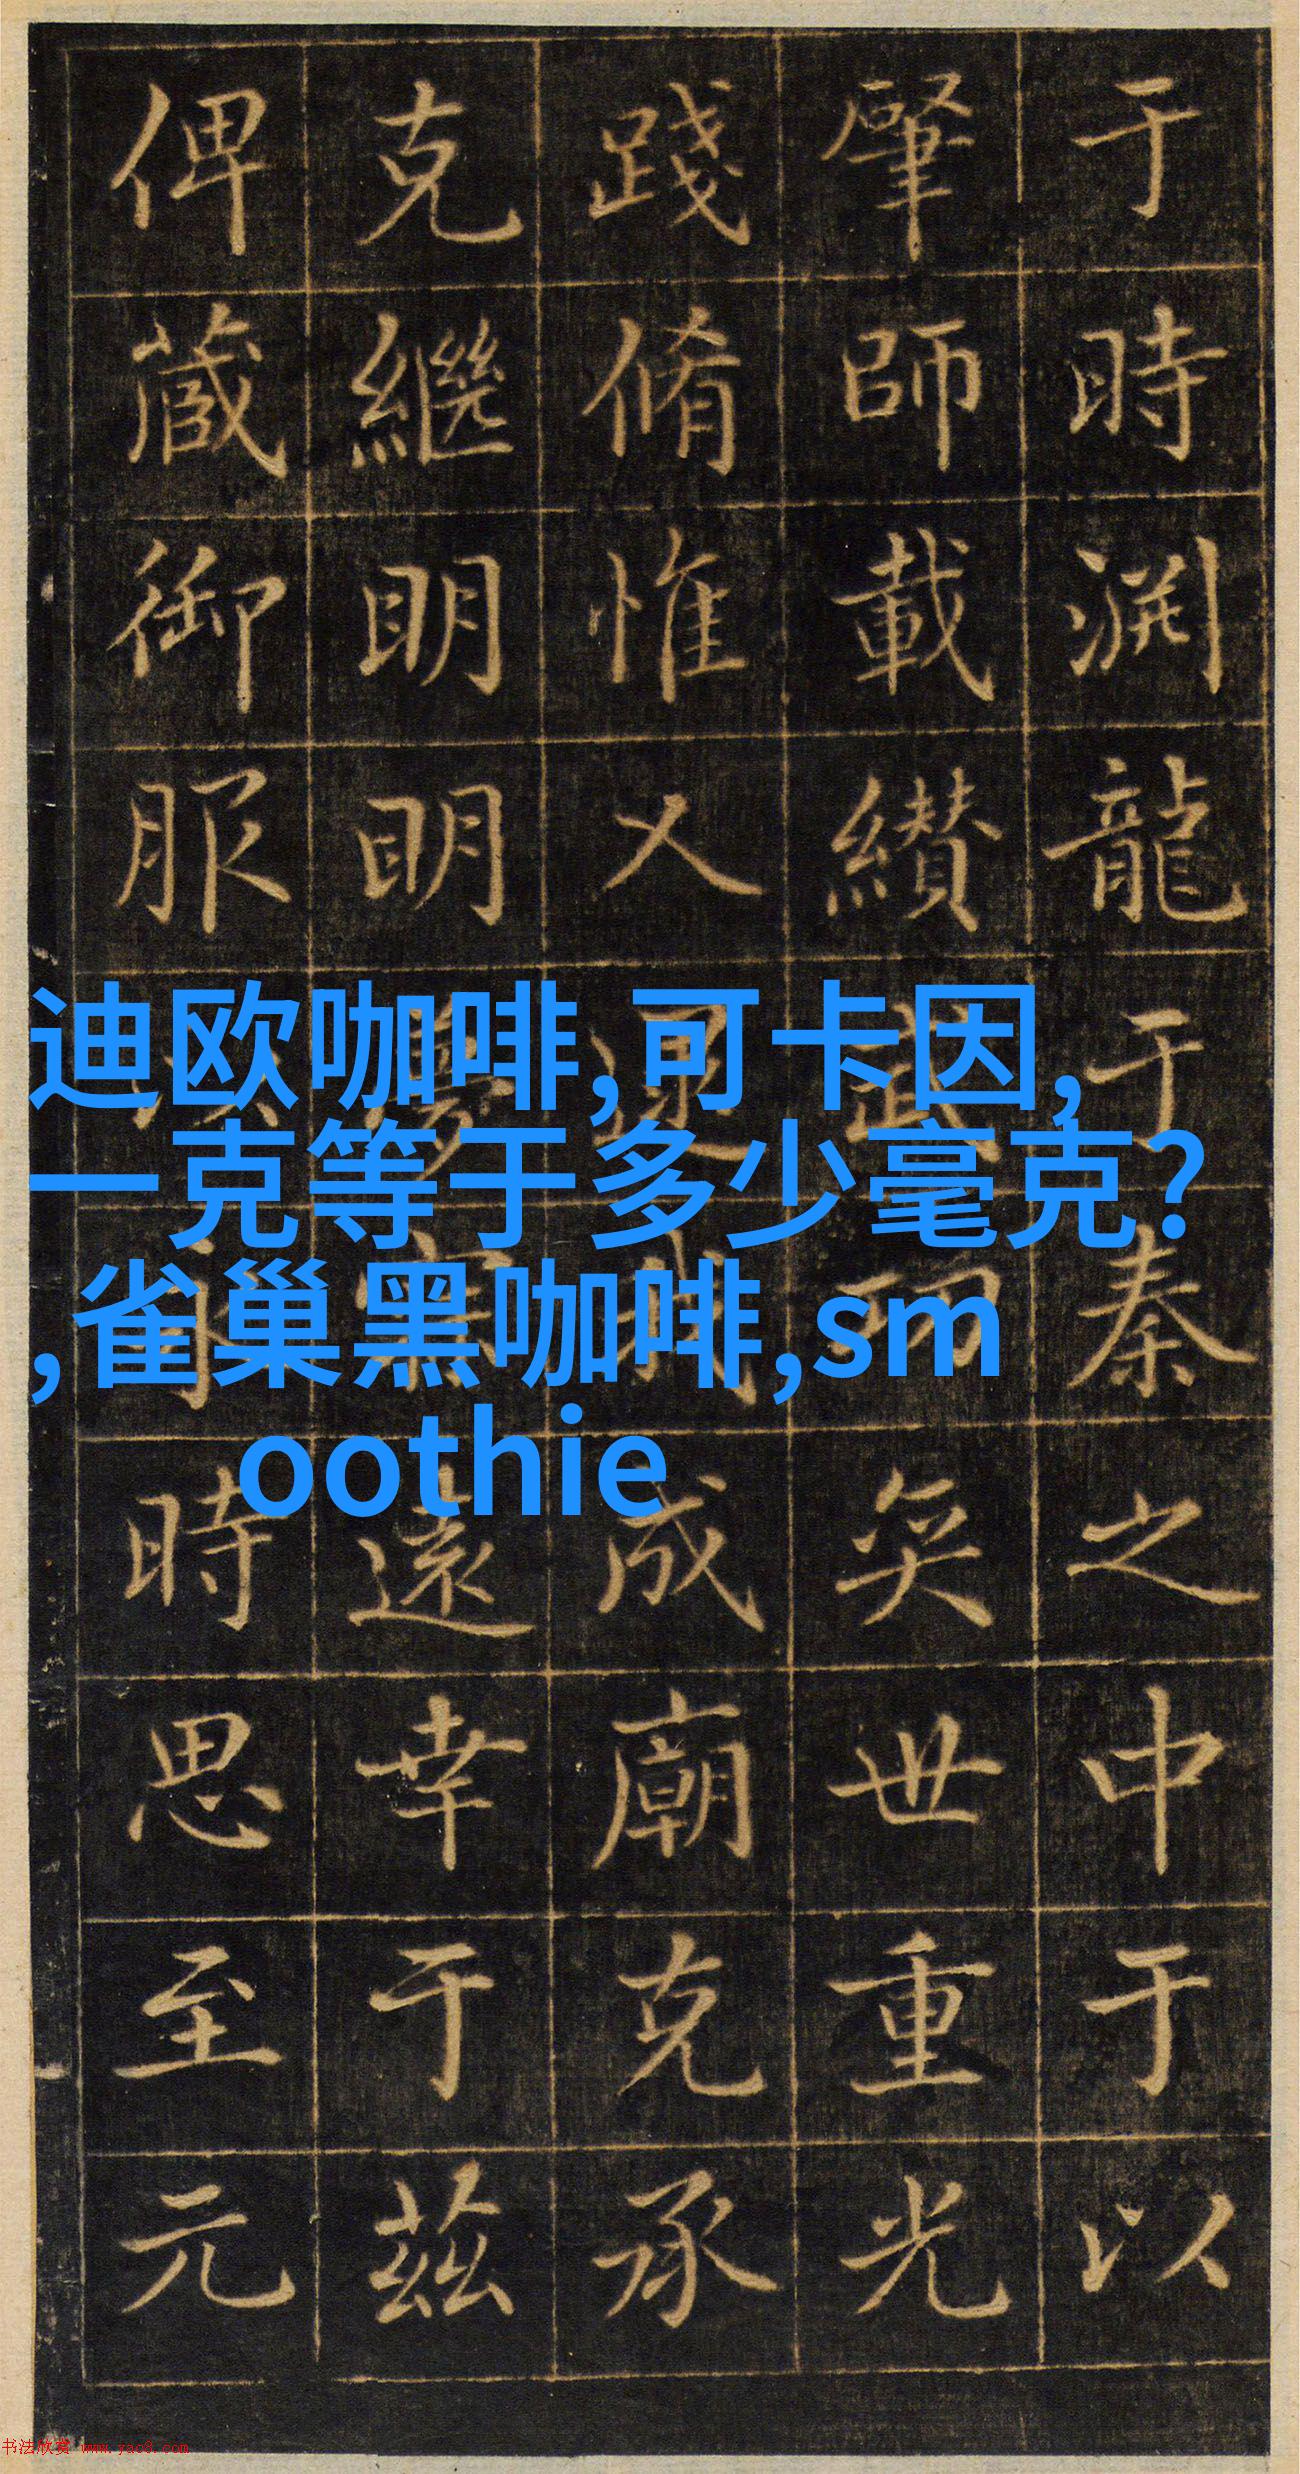 于時渊龍于秦之中于以
肇師載纘武奕世重光
踐脩惟乂逮我成廟克承
克繼明明遠幸于茲
俾蒇御服永時思至元
迪欧咖啡,可卡因,
一克等于多少毫克?
,雀巢黑咖啡,sm
oothie
书法欣赏 www.yac8.com